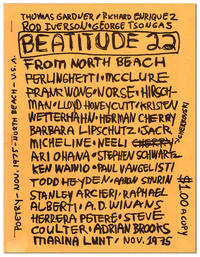 THOMAS GARDNER / RICHARD ENRIQUEZ
ROD IVERSON · GEORGE TSONGAS
BEATITUDE 22
FROM NORTH BEACH
FERLINGHETTI · McCLURE
FRANK WONG · NORSE · HIRSCH-
MAN · LLOYD HONEYCUTT · KRISTEN
WETTERHAHN · HERMAN CHERRY
BARBARA LIPSCHUTZ · JACK
MICHELINE · NEELI CHERRY
ARI OHANA · STEPHEN SCHWARTZ
KEN WAINIO · PAUL VANGELISTI
TODD HEYDEN · AARON SHURIN
STANLEY ARCHER · RAPHAEL
ALBERTI · A.D. WINANS
HERRERA PETERE · STEVE
COULTER · ADRIAN BROOKS
MARINA LUNT · NOV. 1975
POETRY - NOV. 1975 - NORTH BEACH - U.S.A.
$1.00 A COPY